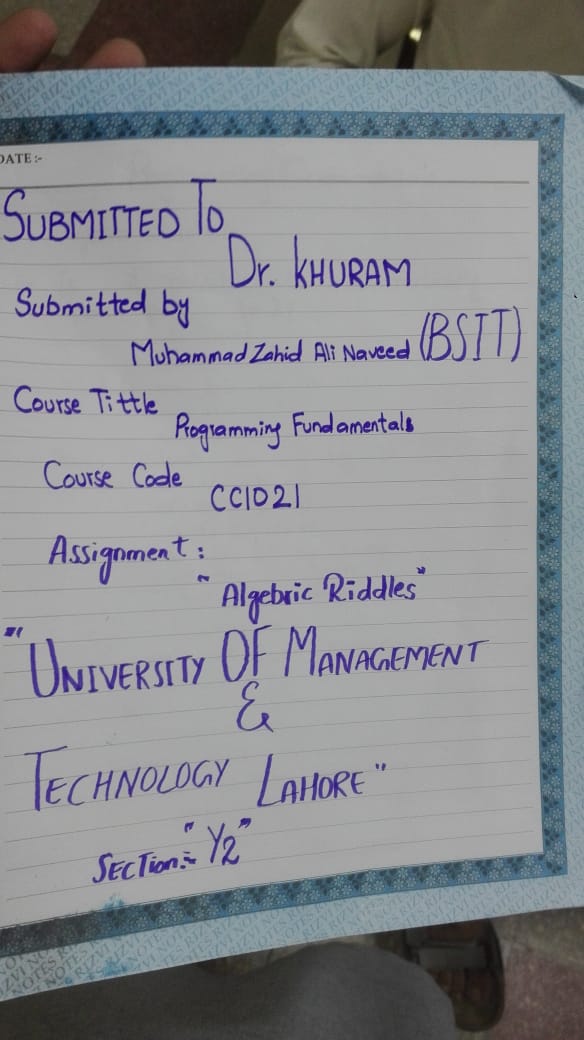 DATE :-
SUBMITTED TO
Dr. KHURAM
Submitted by
Muhammad Zahid Ali Naveed (BSIT)
Course Tittle
Programming Fundamentals
Course Code
CC1021
Assignment :
"Algebric Riddles"
"UNIVERSITY OF MANAGEMENT
&
TECHNOLOGY LAHORE"
SECTion:- "Y2"